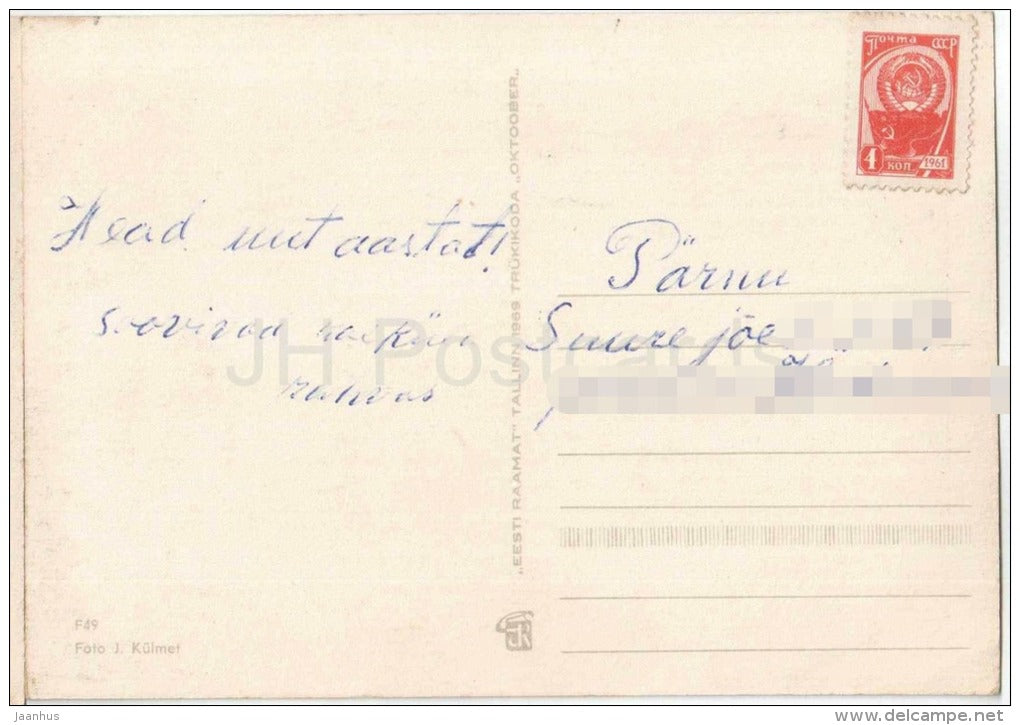 Почта СССР
4 коп 1961
Head uut aastat!
soovivad
rahvas
Pärnu
Suure jõe
„EESTI RAAMAT" TALLINN 1969 TRÜKIKODA „OKTOOBER"
JH Postcards
F49
Foto J. Külmet
jaanhus
www.delcampe.net